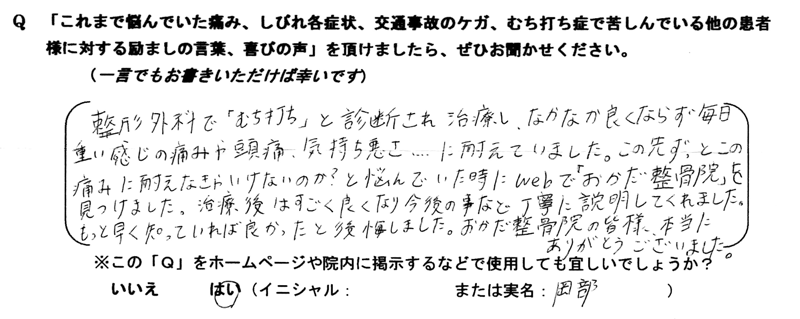 Q 「これまで悩んでいた痛み、しびれ各症状、交通事故のケガ、むち打ち症で苦しんでいる他の患者
様に対する励ましの言葉、喜びの声」を頂けましたら、ぜひお聞かせください。
（一言でもお書きいただけば幸いです）
整形外科で「むち打ち」と診断され治療し、なかなか良くならず毎日
重い感じの痛みや頭痛、気持ち悪さ‥‥に耐えていました。この先ずっとこの
痛みに耐えなきゃいけないのか？と悩んでいた時にwebで「おかだ整骨院」を
見つけました。治療後はすごく良くなり今後の事など丁寧に説明してくれました。
もっと早く知っていれば良かったと後悔しました。おかだ整骨院の皆様、本当に
ありがとうございました。
※この「Q」をホームページや院内に掲示するなどで使用しても宜しいでしょうか？
いいえ はい（イニシャル： または実名：岡部 ）